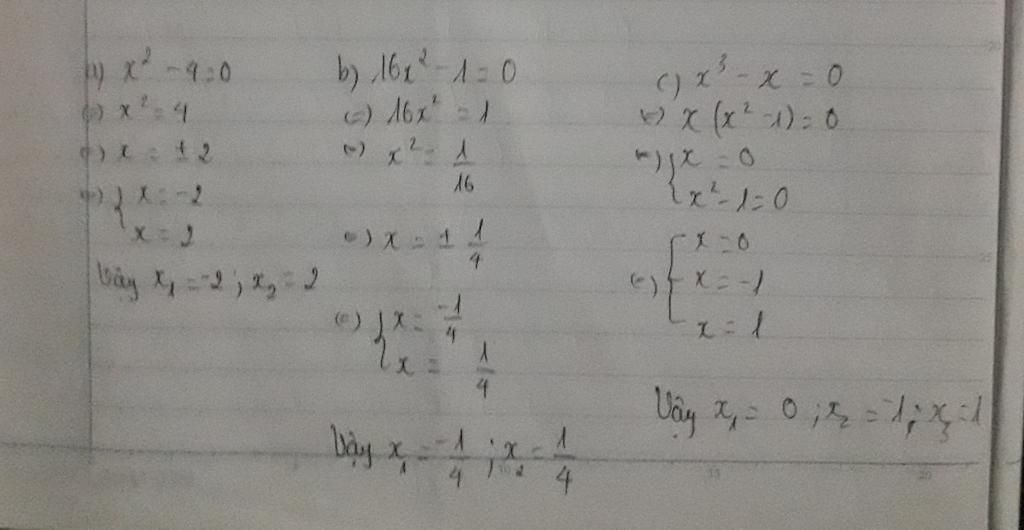 a) x² - 4 = 0
(=) x² = 4
(=) x = ± 2
(=) { x = -2
x = 2
Vậy x₁ = -2 ; x₂ = 2
b) 16x² - 1 = 0
(=) 16x² = 1
(=) x² = 1/16
(=) x = ± 1/4
(=) { x = -1/4
x = 1/4
Vậy x₁ = -1/4 ; x₂ = 1/4
c) x³ - x = 0
(=) x (x² - 1) = 0
(=) { x = 0
x² - 1 = 0
(=) [ x = 0
x = -1
x = 1
Vậy x₁ = 0 ; x₂ = -1 ; x₃ = 1